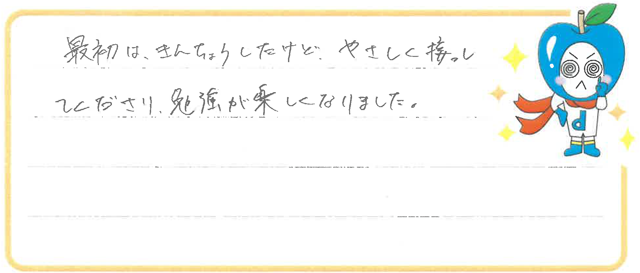 最初は、きんちょうしたけど、やさしく接っし
てくださり、勉強が楽しくなりました。
d